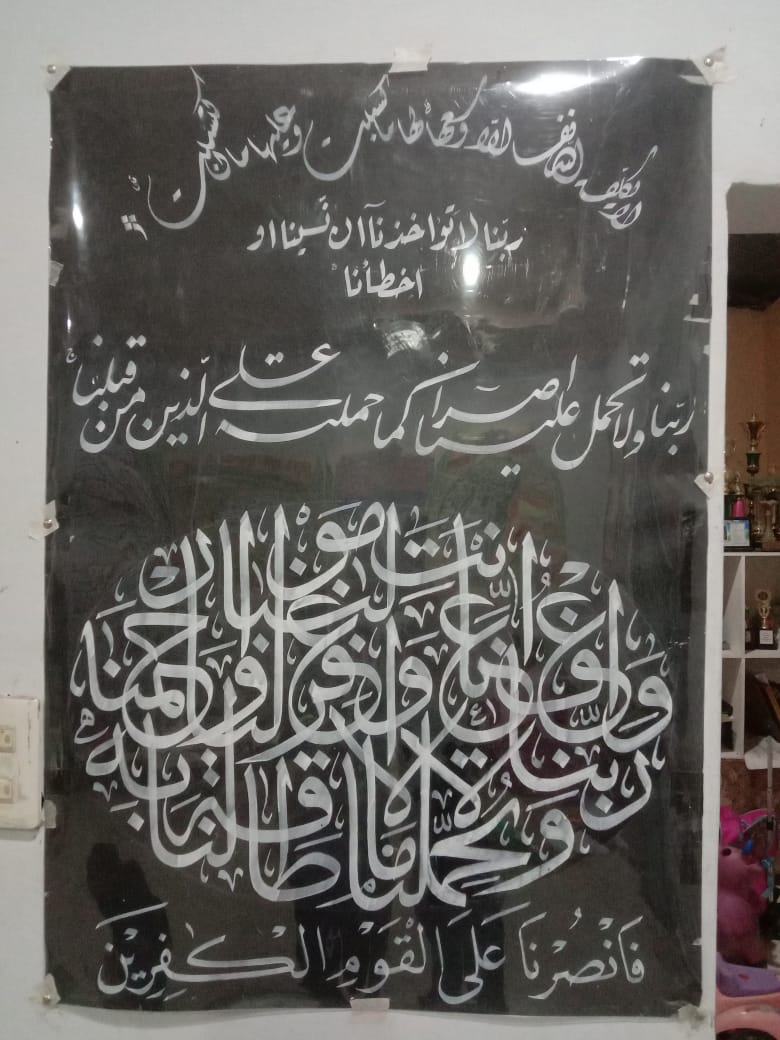 لا يكلف الله نفسا الا وسعها لها ما كسبت وعليها ما اكتسبت
ربّنا لا تؤاخذنآ ان نّسينا او
اخطأنا
ربّنا ولا تحمل علينآ اصرا كما حملته على الّذين من قبلنا
ربنا ولا تحمّلنا ما لا طاقة لنا به
واعف عنّا واغفر لنا وارحمنا
انت مولانا
فَانْصُرْنَا عَلَى الْقَوْمِ الْكٰفِرِيْنَ